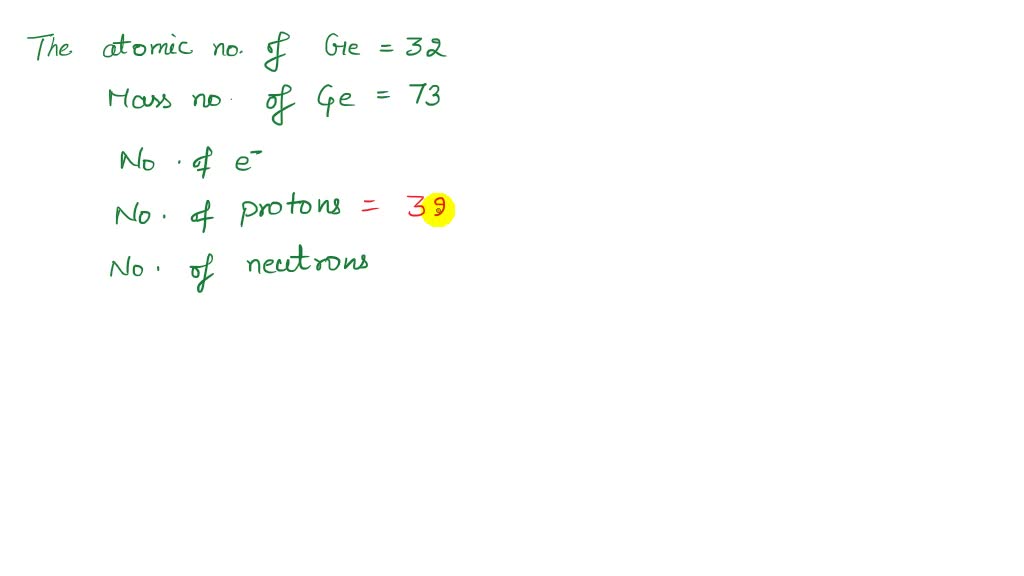 The atomic no. of Ge = 32
Mass no. of Ge = 73
No. of e⁻
No. of protons = 32
No. of neutrons